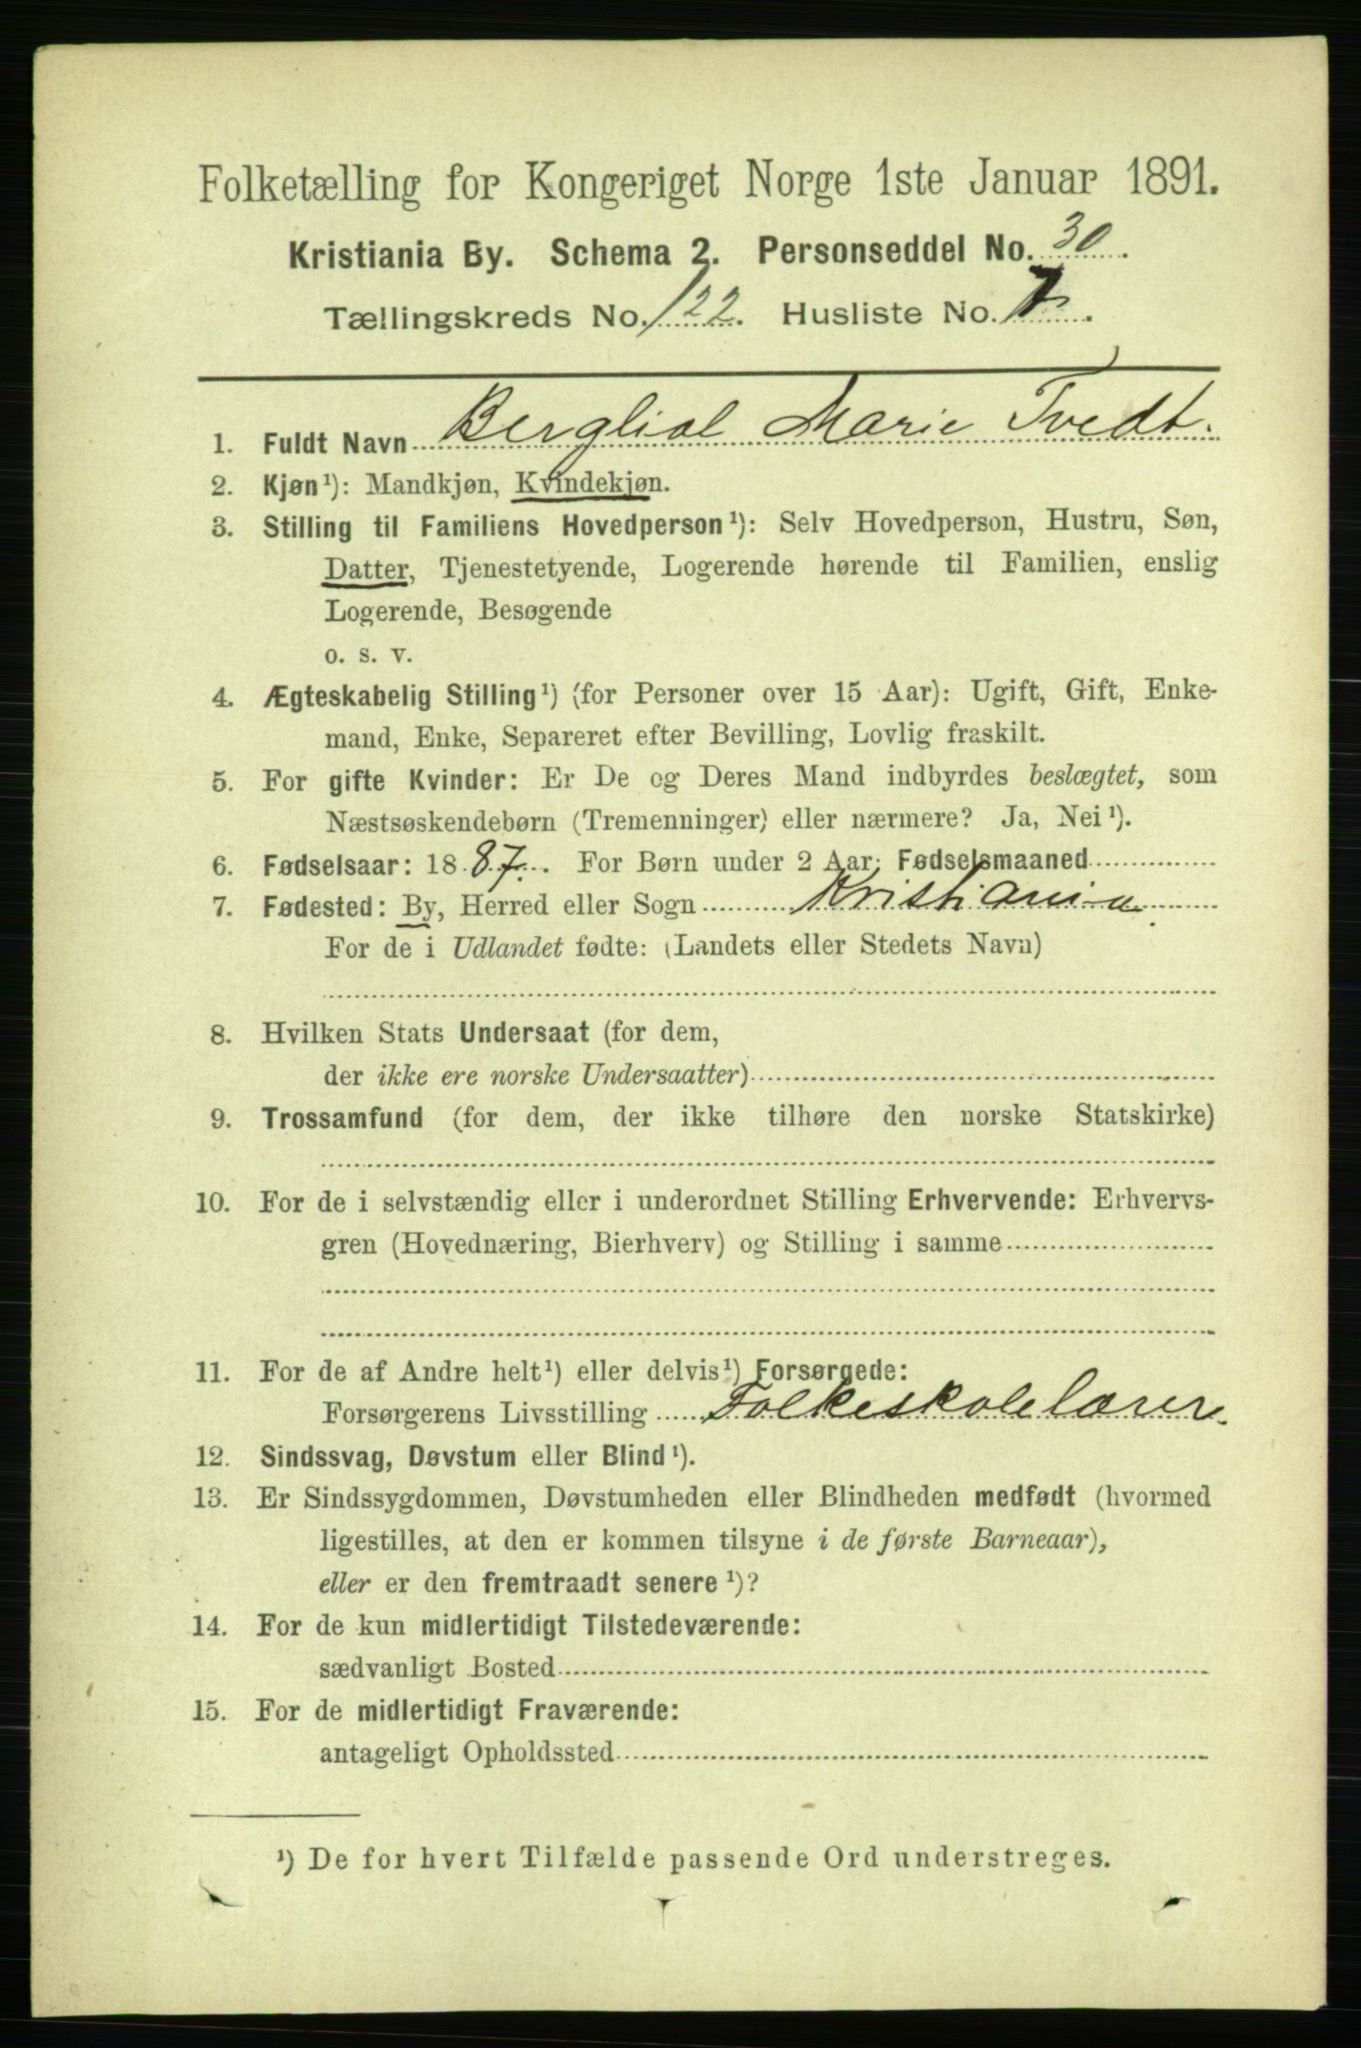 Folketælling for Kongeriget Norge 1ste Januar 1891.
Kristiania By. Schema 2. Personseddel No. 30.
Tællingskreds No. 122. Husliste No. 7.
1. Fuldt Navn Bergliot Marie Tvedt.
2. Kjøn¹): Mandkjøn, Kvindekjøn.
3. Stilling til Familiens Hovedperson¹): Selv Hovedperson, Hustru, Søn,
Datter, Tjenestetyende, Logerende hørende til Familien, enslig
Logerende, Besøgende
o. s. v.
4. Ægteskabelig Stilling¹) (for Personer over 15 Aar): Ugift, Gift, Enke-
mand, Enke, Separeret efter Bevilling, Lovlig fraskilt.
5. For gifte Kvinder: Er De og Deres Mand indbyrdes beslægtet, som
Næstsøskendebørn (Tremenninger) eller nærmere? Ja, Nei¹).
6. Fødselsaar: 1887. For Børn under 2 Aar: Fødselsmaaned
7. Fødested: By, Herred eller Sogn Kristiania
For de i Udlandet fødte: (Landets eller Stedets Navn)
8. Hvilken Stats Undersaat (for dem,
der ikke ere norske Undersaatter)
9. Trossamfund (for dem, der ikke tilhøre den norske Statskirke)
10. For de i selvstændig eller i underordnet Stilling Erhvervende: Erhvervs-
gren (Hovednæring, Bierhverv) og Stilling i samme
11. For de af Andre helt¹) eller delvis¹) Forsørgede:
Forsørgerens Livsstilling Folkeskolelærer.
12. Sindssvag, Døvstum eller Blind¹).
13. Er Sindssygdommen, Døvstumheden eller Blindheden medfødt (hvormed
ligestilles, at den er kommen tilsyne i de første Barneaar),
eller er den fremtraadt senere¹)?
14. For de kun midlertidigt Tilstedeværende:
sædvanligt Bosted
15. For de midlertidigt Fraværende:
antageligt Opholdssted
¹) De for hvert Tilfælde passende Ord understreges.